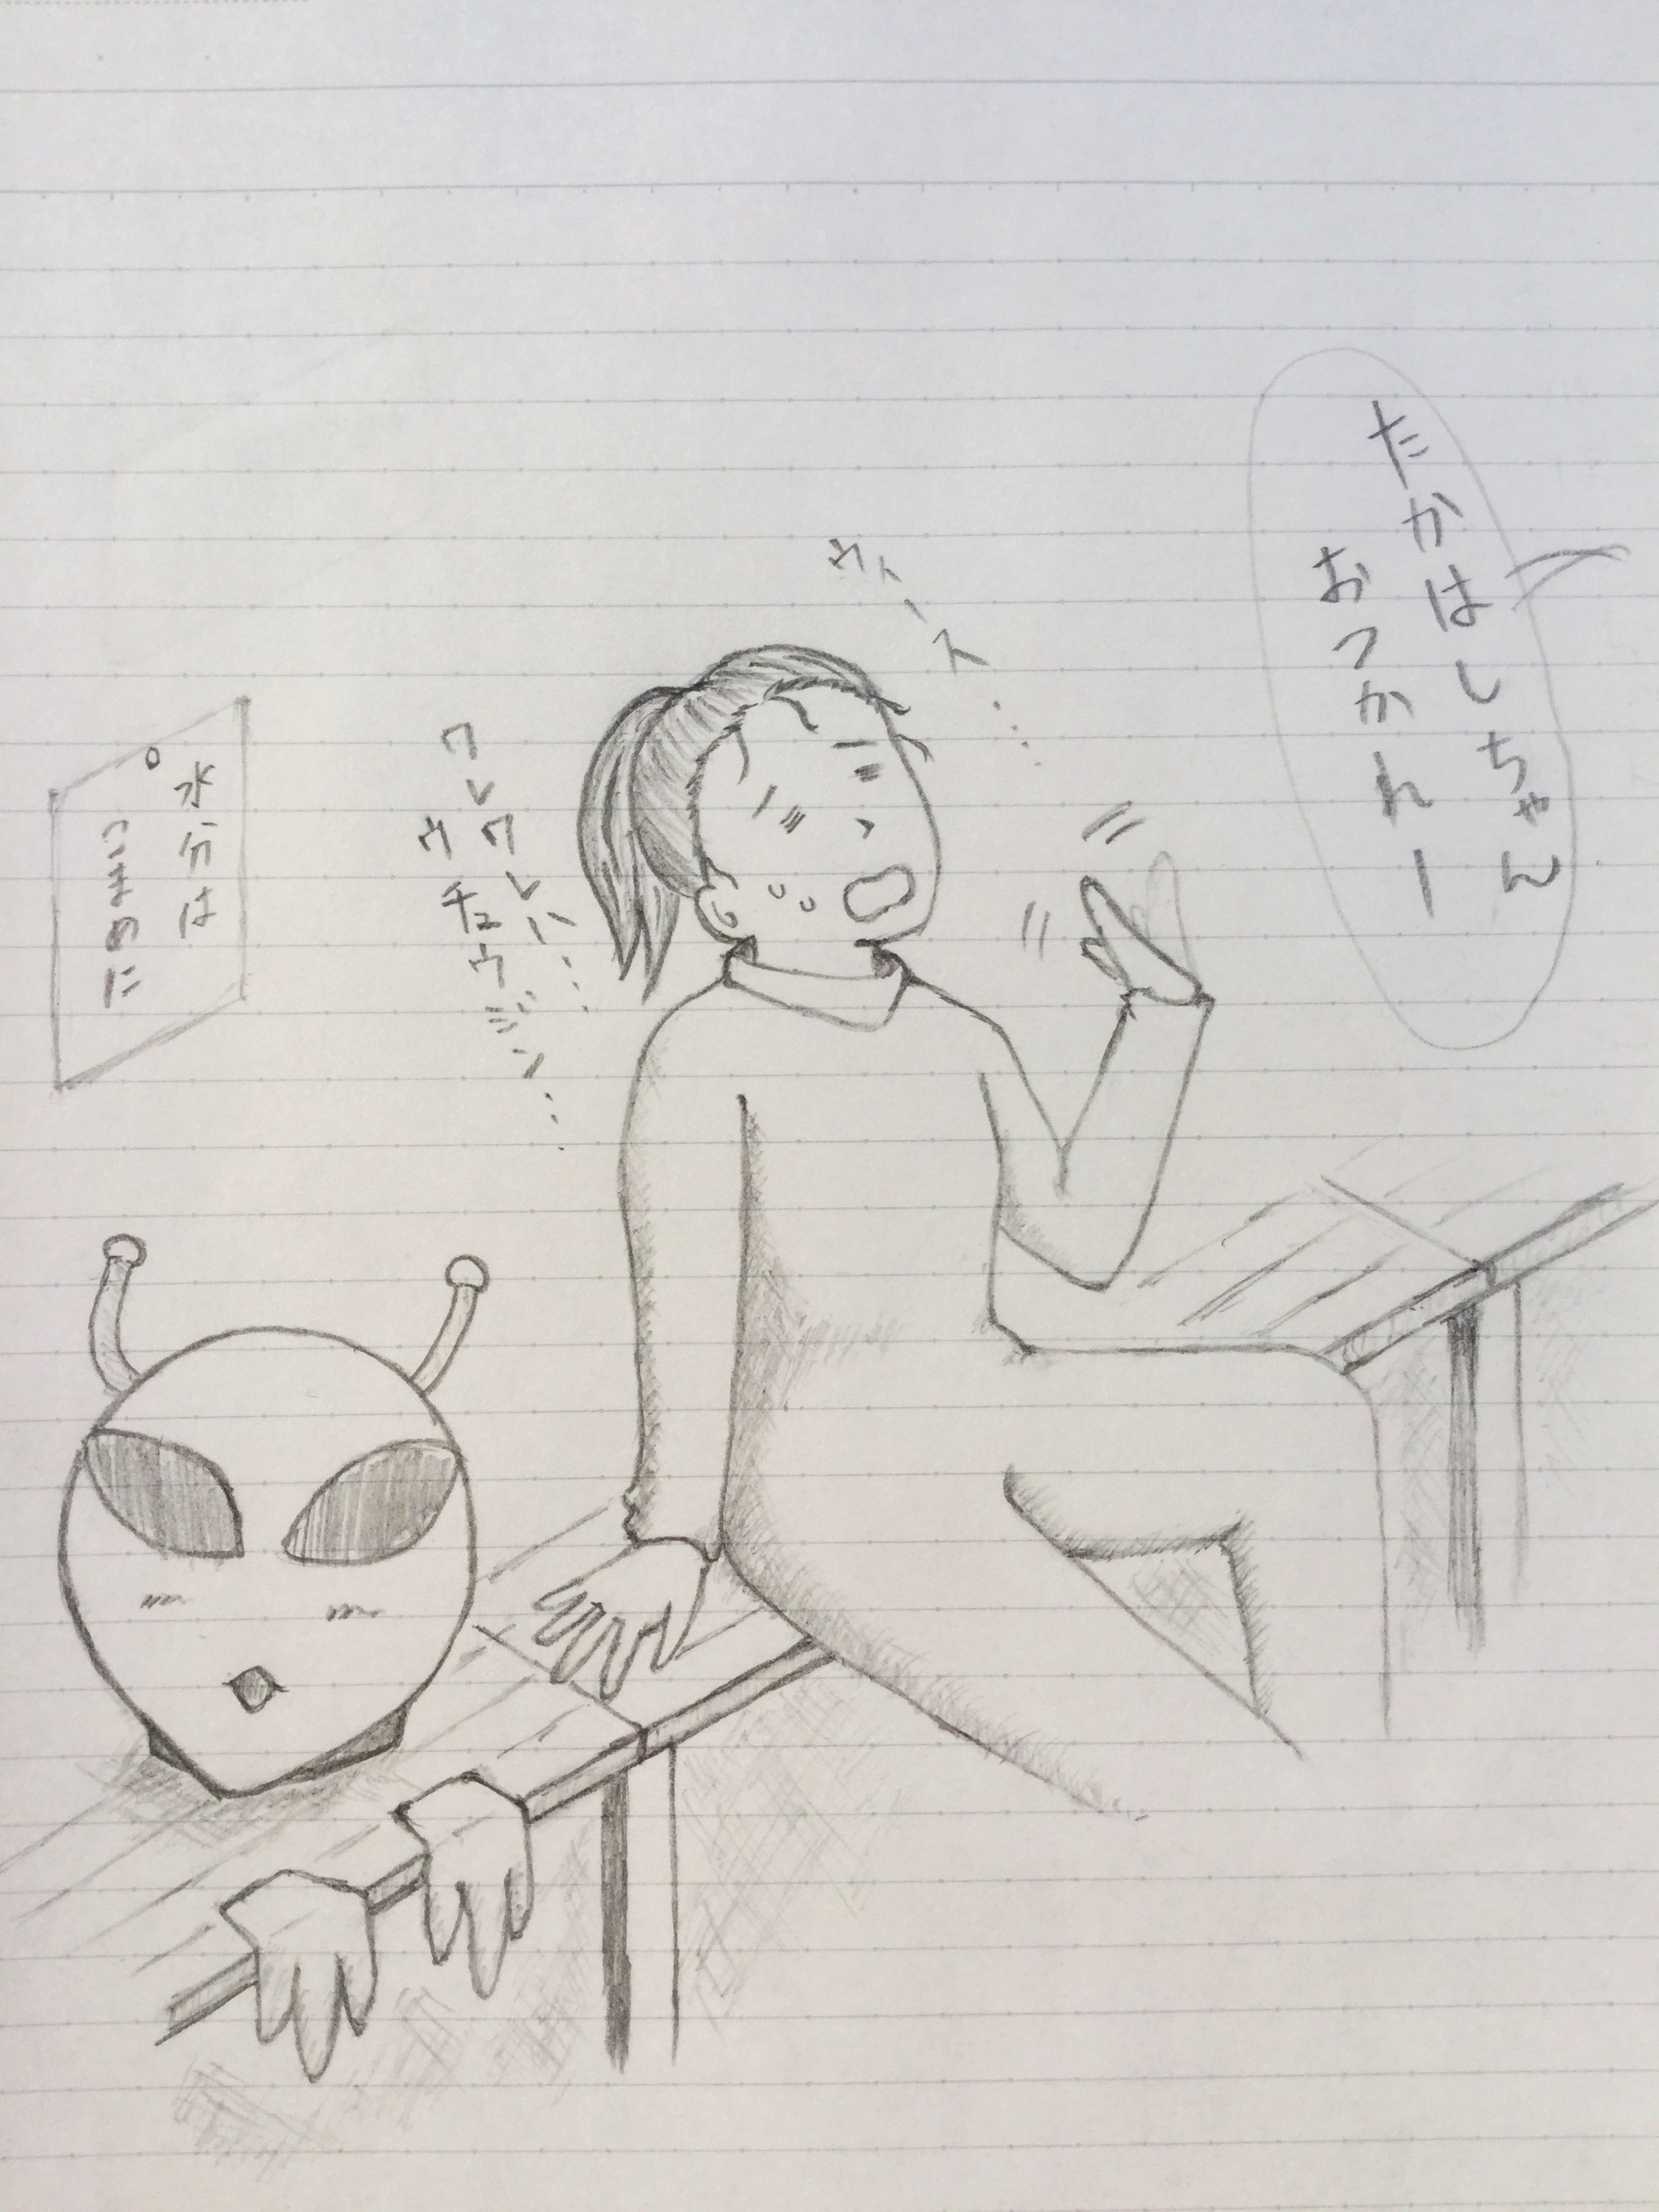 たかはしちゃん
おつかれー
ウィース…
ワレワレハ…
ウチュウジン…
水分は
こまめに